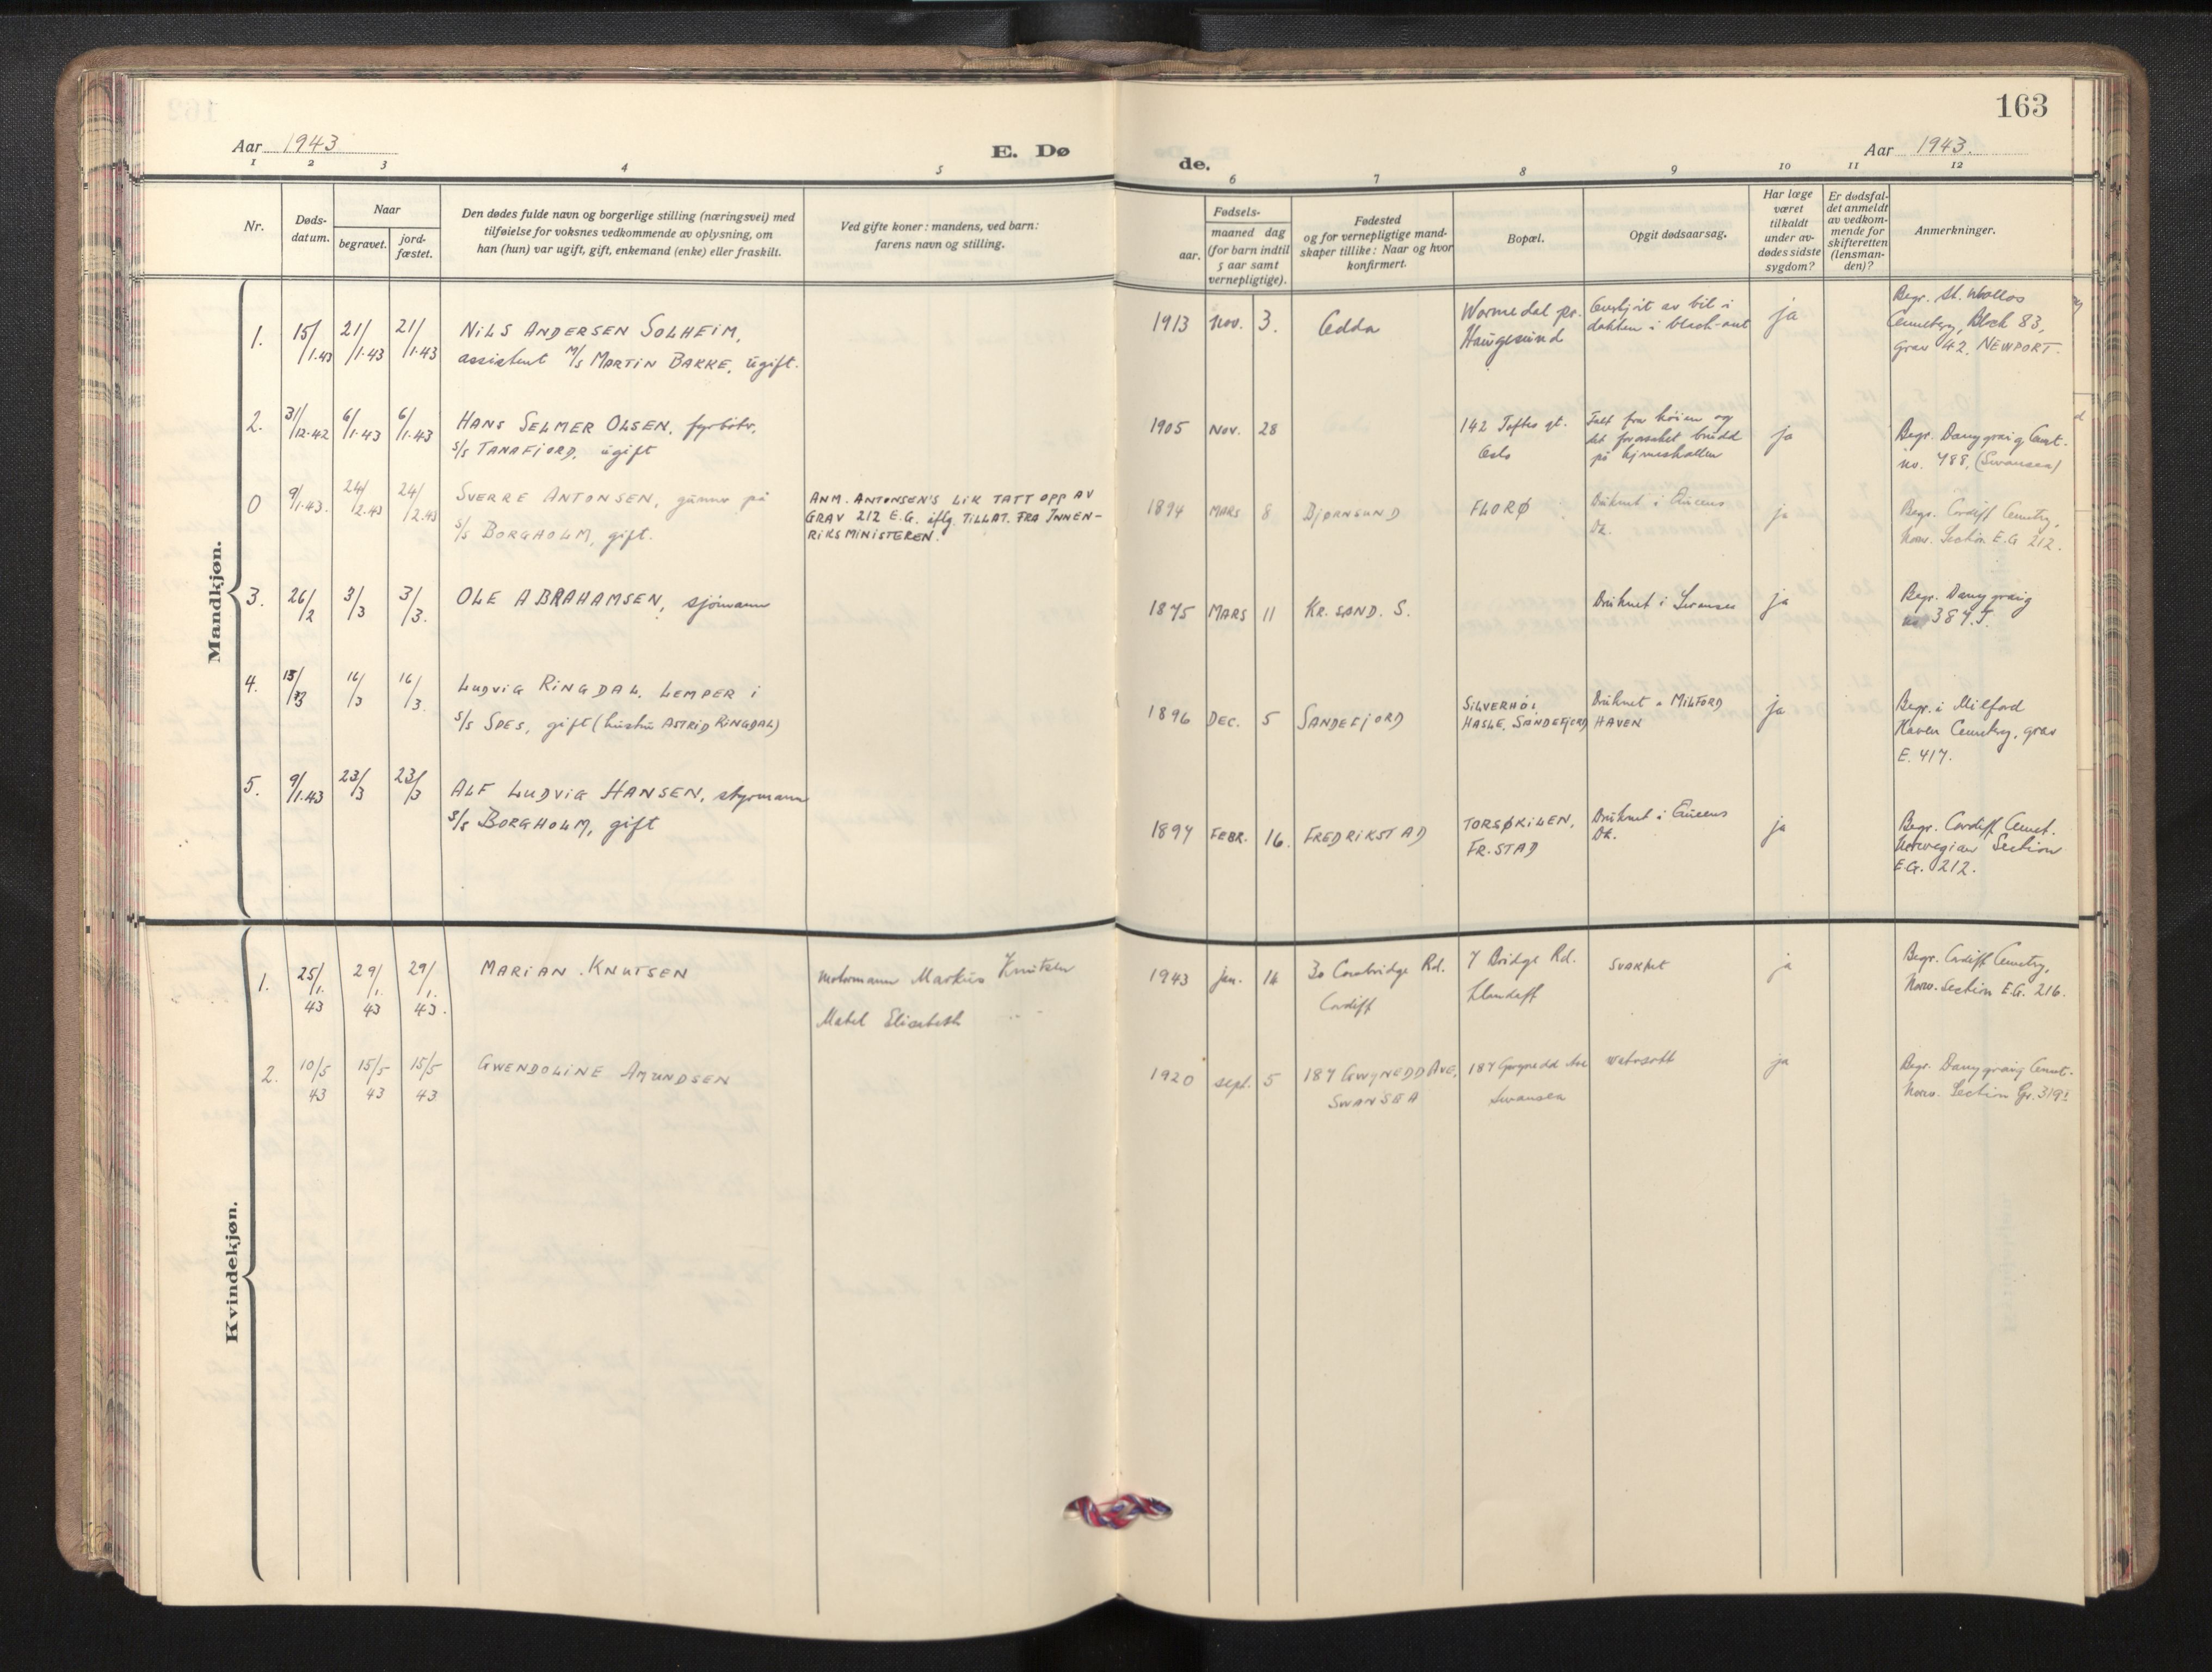 163
Aar 1943
E. Dø
de.
Aar 1943.
1 2 3 4 5 6 7 8 9 10 11 12
Nr.
Døds-
datum.
Naar
begravet.
jord-
fæstet.
Den dødes fulde navn og borgerlige stilling (næringsvei) med
tilføielse for voksnes vedkommende av oplysning, om
han (hun) var ugift, gift, enkemand (enke) eller fraskilt.
Ved gifte koner: mandens, ved barn:
farens navn og stilling.
Fødsels-
aar.
maaned dag
(for barn indtil
5 aar samt
vernepligtige).
Fødested
og for vernepligtige mand-
skaper tillike: Naar og hvor
konfirmert.
Bopæl.
Opgit dødsaarsag.
Har læge
været
tilkaldt
under av-
dødes sidste
sygdom?
Er dødsfal-
det anmeldt
av vedkom-
mende for
skifteretten
(lensman-
den)?
Anmerkninger.
Mandkjøn.
1. 15/1.43 21/1.43 21/1.43
NILS ANDERSEN SOLHEIM,
assistent M/S MARTIN BAKKE, ugift.
1913 Nov. 3.
Edda
Wormedal pr.
Haugesund
Overkjørt av bil i
dokken i black-out
ja
Begr. St. Woollos
Cemetery, Block 83,
grav 42, NEWPORT.
2. 31/12.42 6/1.43 6/1.43
HANS SELMER OLSEN, fyrbøter,
S/S TANAFJORD, ugift
1905 Nov. 28
142 Toftes gt.
Oslo
Falt fra køien og
det forårsaket brudd
på hjerneskallen
ja
Begr. Danygraig Cemt.
no. 488, (Swansea)
0 9/1.43. 24/2.43 24/2.43
SVERRE ANTONSEN, gunner på
S/S BORGHOLM, gift.
ANM. ANTONSEN'S LIK TATT OPP AV
GRAV 212 E.G. iflg. TILLAT. FRA INNEN-
RIKSMINISTEREN.
1894 MARS 8
BJØRNSUND
FLORØ
Druknet i Queens
Dk.
ja
Begr. Cardiff Cemetry,
Norw. Section E.G 212.
3. 26/2 3/3 3/3.
OLE ABRAHAMSEN, sjømann
1875 MARS 11
KR. SAND. S.
Druknet i Swansea
ja
Begr. Danygraig
387.J.
4. 13/3 16/3 16/3.
LUDVIG RINGDAL, LEMPER i
S/S SPES, gift (hustru ASTRID RINGDAL)
1896 DEC. 5
SANDEFJORD
SILVERHØI
HASLE, SANDEFJORD
Druknet i MILFORD
HAVEN
ja
Begr. i Milford
Haven Cemetery, grav
E. 417.
5. 9/1.43 23/3 23/3
ALF LUDVIG HANSEN, styrmann
S/S BORGHOLM, gift
1897 FEBR. 16.
FREDRIKSTAD
TORSØKILEN,
FR.STAD
Druknet i Queens
Dk.
ja
Begr. Cardiff Cemet.
Norwegian Section
E.G. 212.
Kvindekjøn.
1. 25/1. 43 29/1. 43 29/1. 43.
MARIAN KNUTSEN
Motormann Markus Knutsen
Mabel Elisabeth " "
1943 jan. 14
30 Cowbridge Rd.
Cardiff
7 Bridge Rd.
Llandaff
SVAKHET
ja
Begr. Cardiff Cemetry,
Norw. Section E.G. 216.
2. 10/5 43 15/5 43 15/5 43
GWENDOLINE AMUNDSEN
1920 sept. 5
187 GWYNEDD AVE,
SWANSEA
187 Gwynedd Ave
Swansea
ja
Begr. Danygraig Cemt.
Norw. Section Gr. 319